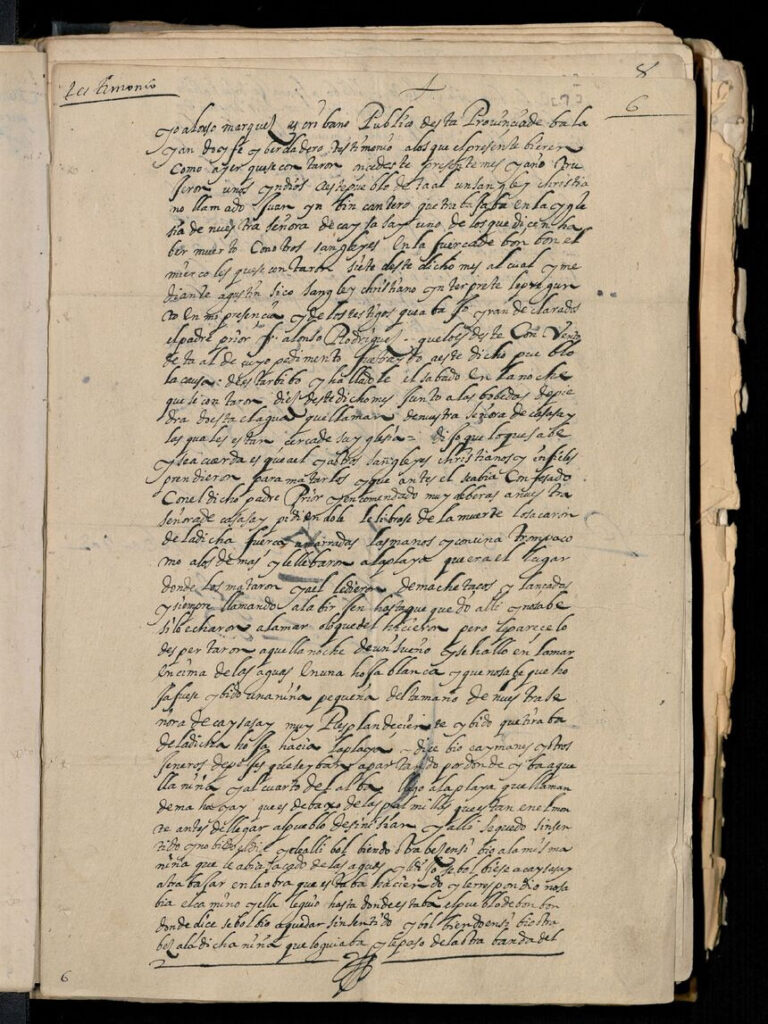 testimonio
8
6
yo alonso marquez escribano Publico desta Provincia de bala
yan doy fe y berdadero testimonio a los que el presente bieren
Como ayer que se contaron once deste presente mes y año tru
jeron unos yndios a este pueblo de taal un sangley christia
no llamado Juan yn bin cantero que trabajaba en la ygle
sia de nuestra señora de caysasay uno de los que dicen ha
ber muerto Con otros sangleyes En la fuerca de bonbon el
miercoles que se contaron siete deste dicho mes al cual y me
diante agustin sico sangley christiano ynterprete le pregun
to En mi presencia y de los testigos que abajo yran declarados
el padre prior fr. alonso Rodriguez que lo es deste Convento
de taal de cuyo pedimento fue traydo a este dicho pueblo
la causa de estar bibo y halladole el sabado En la noche
que se contaron diez deste dicho mes junto a las bobedas de pie
dra do esta el agua que llaman de nuestra señora de casasay
las quales estan cerca de su yglesia = dijo que lo que sabe
y se acuerda es que a el y a otros sangleyes christianos y infieles
prendieron para matarlos y que antes el se abia Confesado
Con el dicho padre Prior y encomendado muy de beras a nuestra
señora de casasay pidiendole le librase de la muerte lo sacaron
de la dicha fuerca amarradas las manos y con una trompa co
mo a los demas y le llebaron a la playa que era el lugar
donde los mataron y a el le dieron de machetacos y lançadas
y siempre llamando a la birjen hasta que quedo alli y no sabe
si le echaron a la mar o lo que del hicieron pero le parece lo
despertaron aquella noche de un sueño y se hallo en la mar
Encima de las aguas En una hoja blanca y que no sabe que ho
ja fuese y bido una niña pequeña del tamaño de nuestra se
ñora de caysasay muy Resplandeciente y bido que tiraba
de la dicha hoja hacia la playa y dice bio caymanes y otros
jeneros de peses que se yban apartando por donde yba aque
lla niña y al cuarto del alba llego a la playa que llaman
de mahabay que es debaxo de las palmillas que estan en el mon
te antes de llegar al pueblo de sinisian y alli se quedo sin sen
tido y no bido a nadie y de alli bolbiendo otra bes en si bio a la misma
niña que le abia sacado de las aguas y le dijo se bolbiese a caysasay
a trabajar en la obra que estaba haciendo y le respondio no sa
bia el camino y ella le guio hasta donde estaba el pueblo de bonbon
donde dice se bolbio a quedar sin sentido y bolbiendo en si bio otra
bes a la dicha niña que lo guiaba y le paso de la otra banda del
6